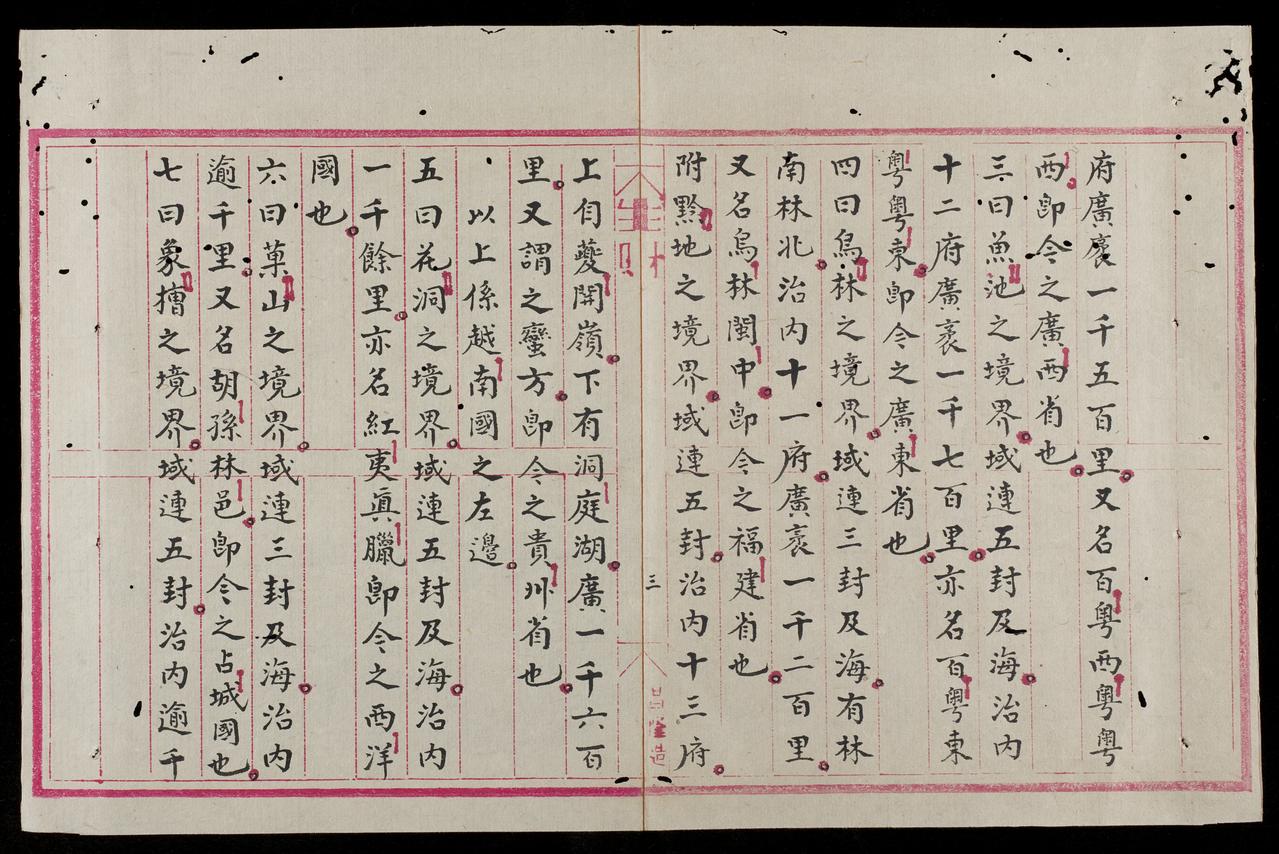 府廣袤一千五百里又名百粤西粤粤
西即今之廣西省也
三曰魚池之境界域連五封及海治内
十二府廣袤一千七百里亦名百粤東
粤粤東即今之廣東省也
四曰鳥林之境界域連三封及海有林
南林北治内十一府廣袤一千二百里
又名鳥林閩中即今之福建省也
附黔地之境界域連五封治内十三府
三
昌隆造
上自夔開嶺下有洞庭湖廣一千六百
里又謂之蠻方即今之貴州省也
以上係越南國之左邊
五曰花洞之境界域連五封及海治内
一千餘里亦名紅夷真臘即今之西洋
國也
六曰菓山之境界域連三封及海治内
逾千里又名胡孫林邑即今之占城國也
七曰象擔之境界域連五封治内逾千